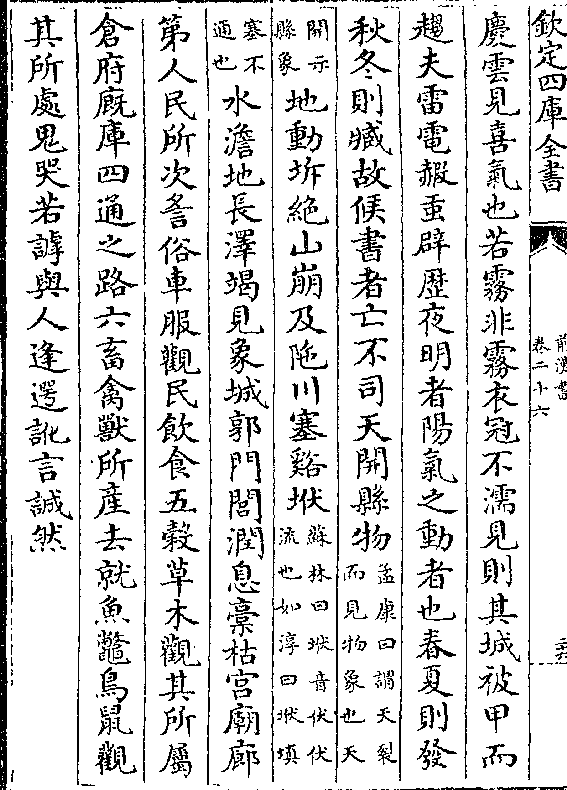 欽定四庫全書
前漢書
卷二十六
慶雲見喜氣也若霧非霧衣冠不濡見則其城被甲而
趨夫雷電赮䖝辟歴夜明者陽氣之動者也春夏則發
秋冬則臧故候書者亡不司天開縣物孟康曰謂天裂而見物象也天
開示縣象地動坼絶山崩及陁川塞谿垘蘇林曰垘音伏伏流也如淳曰垘填
塞不通也水澹地長澤竭見象城郭門閭潤息槀枯宫廟廊
第人民所次謡俗車服觀民飲食五榖草木觀其所屬
倉府廐庫四通之路六畜禽獸所產去就魚鼈鳥鼠觀
其所處鬼哭若謼與人逢遻訛言誠然